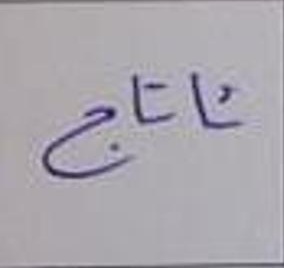 ناتاج